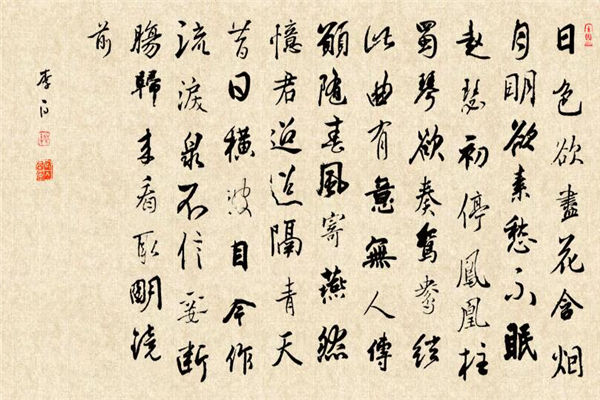 日色欲盡花含烟
月明欲素愁不眠
趙瑟初停鳳凰柱
蜀琴欲奏鴛鴦絃
此曲有意無人傳
願隨春風寄燕然
憶君迢迢隔青天
昔日橫波目今作
流淚泉不信妾斷
腸歸來看取明鏡
前
李白